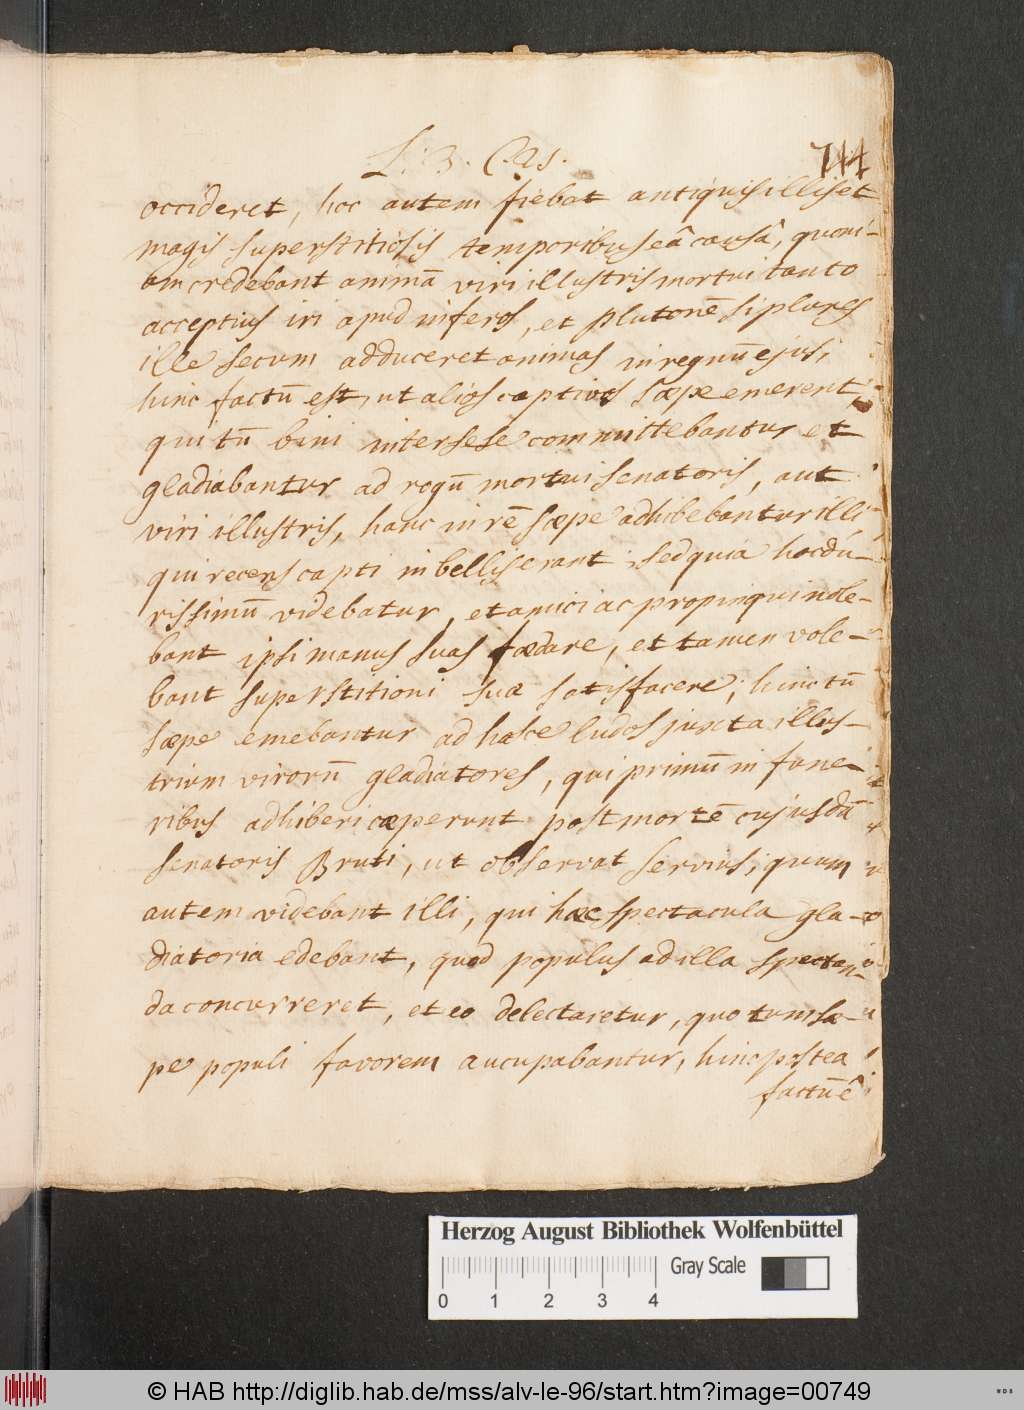 L. 3. Cæs.
744
occideret, hoc autem fiebat antiquis illis et
magis superstitiosis temporibus eâ causâ, quoni-
am credebant animā viri illustris mortui tanto
acceptius iri apud inferos, et plutonē si plures
ille secum adduceret animas in regnū ejus;
hinc factū est, ut alios captivos sæpe emerent,
qui tū bini inter sese committebantur et
gladiabantur ad rogū mortui senatoris, aut
viri illustris, hanc in rē sæpe adhibebantur illi,
qui recens capti in bellis erant; sed quia hoc du-
rissimū videbatur, et amici ac propinqui nole-
bant ipsi manus suas fœdare, et tamen vole-
bant superstitioni suæ satisfacere; hinc tū
sæpe emebantur ad hasce ludos juxta illus-
trium virorū gladiatores, qui primū in fune-
ribus adhiberi cœperunt post mortē cujusdā
senatoris Bruti, ut observat servius; quum
autem videbant illi, qui hæc spectacula gla-
diatoria edebant, quod populus ad illa spectan-
da concurreret, et eo delectaretur, quo tum sæ-
pe populi favorem aucupabantur, hinc postea
factū ê
Herzog August Bibliothek Wolfenbüttel
0 1 2 3 4
Gray Scale
© HAB http://diglib.hab.de/mss/alv-le-96/start.htm?image=00749